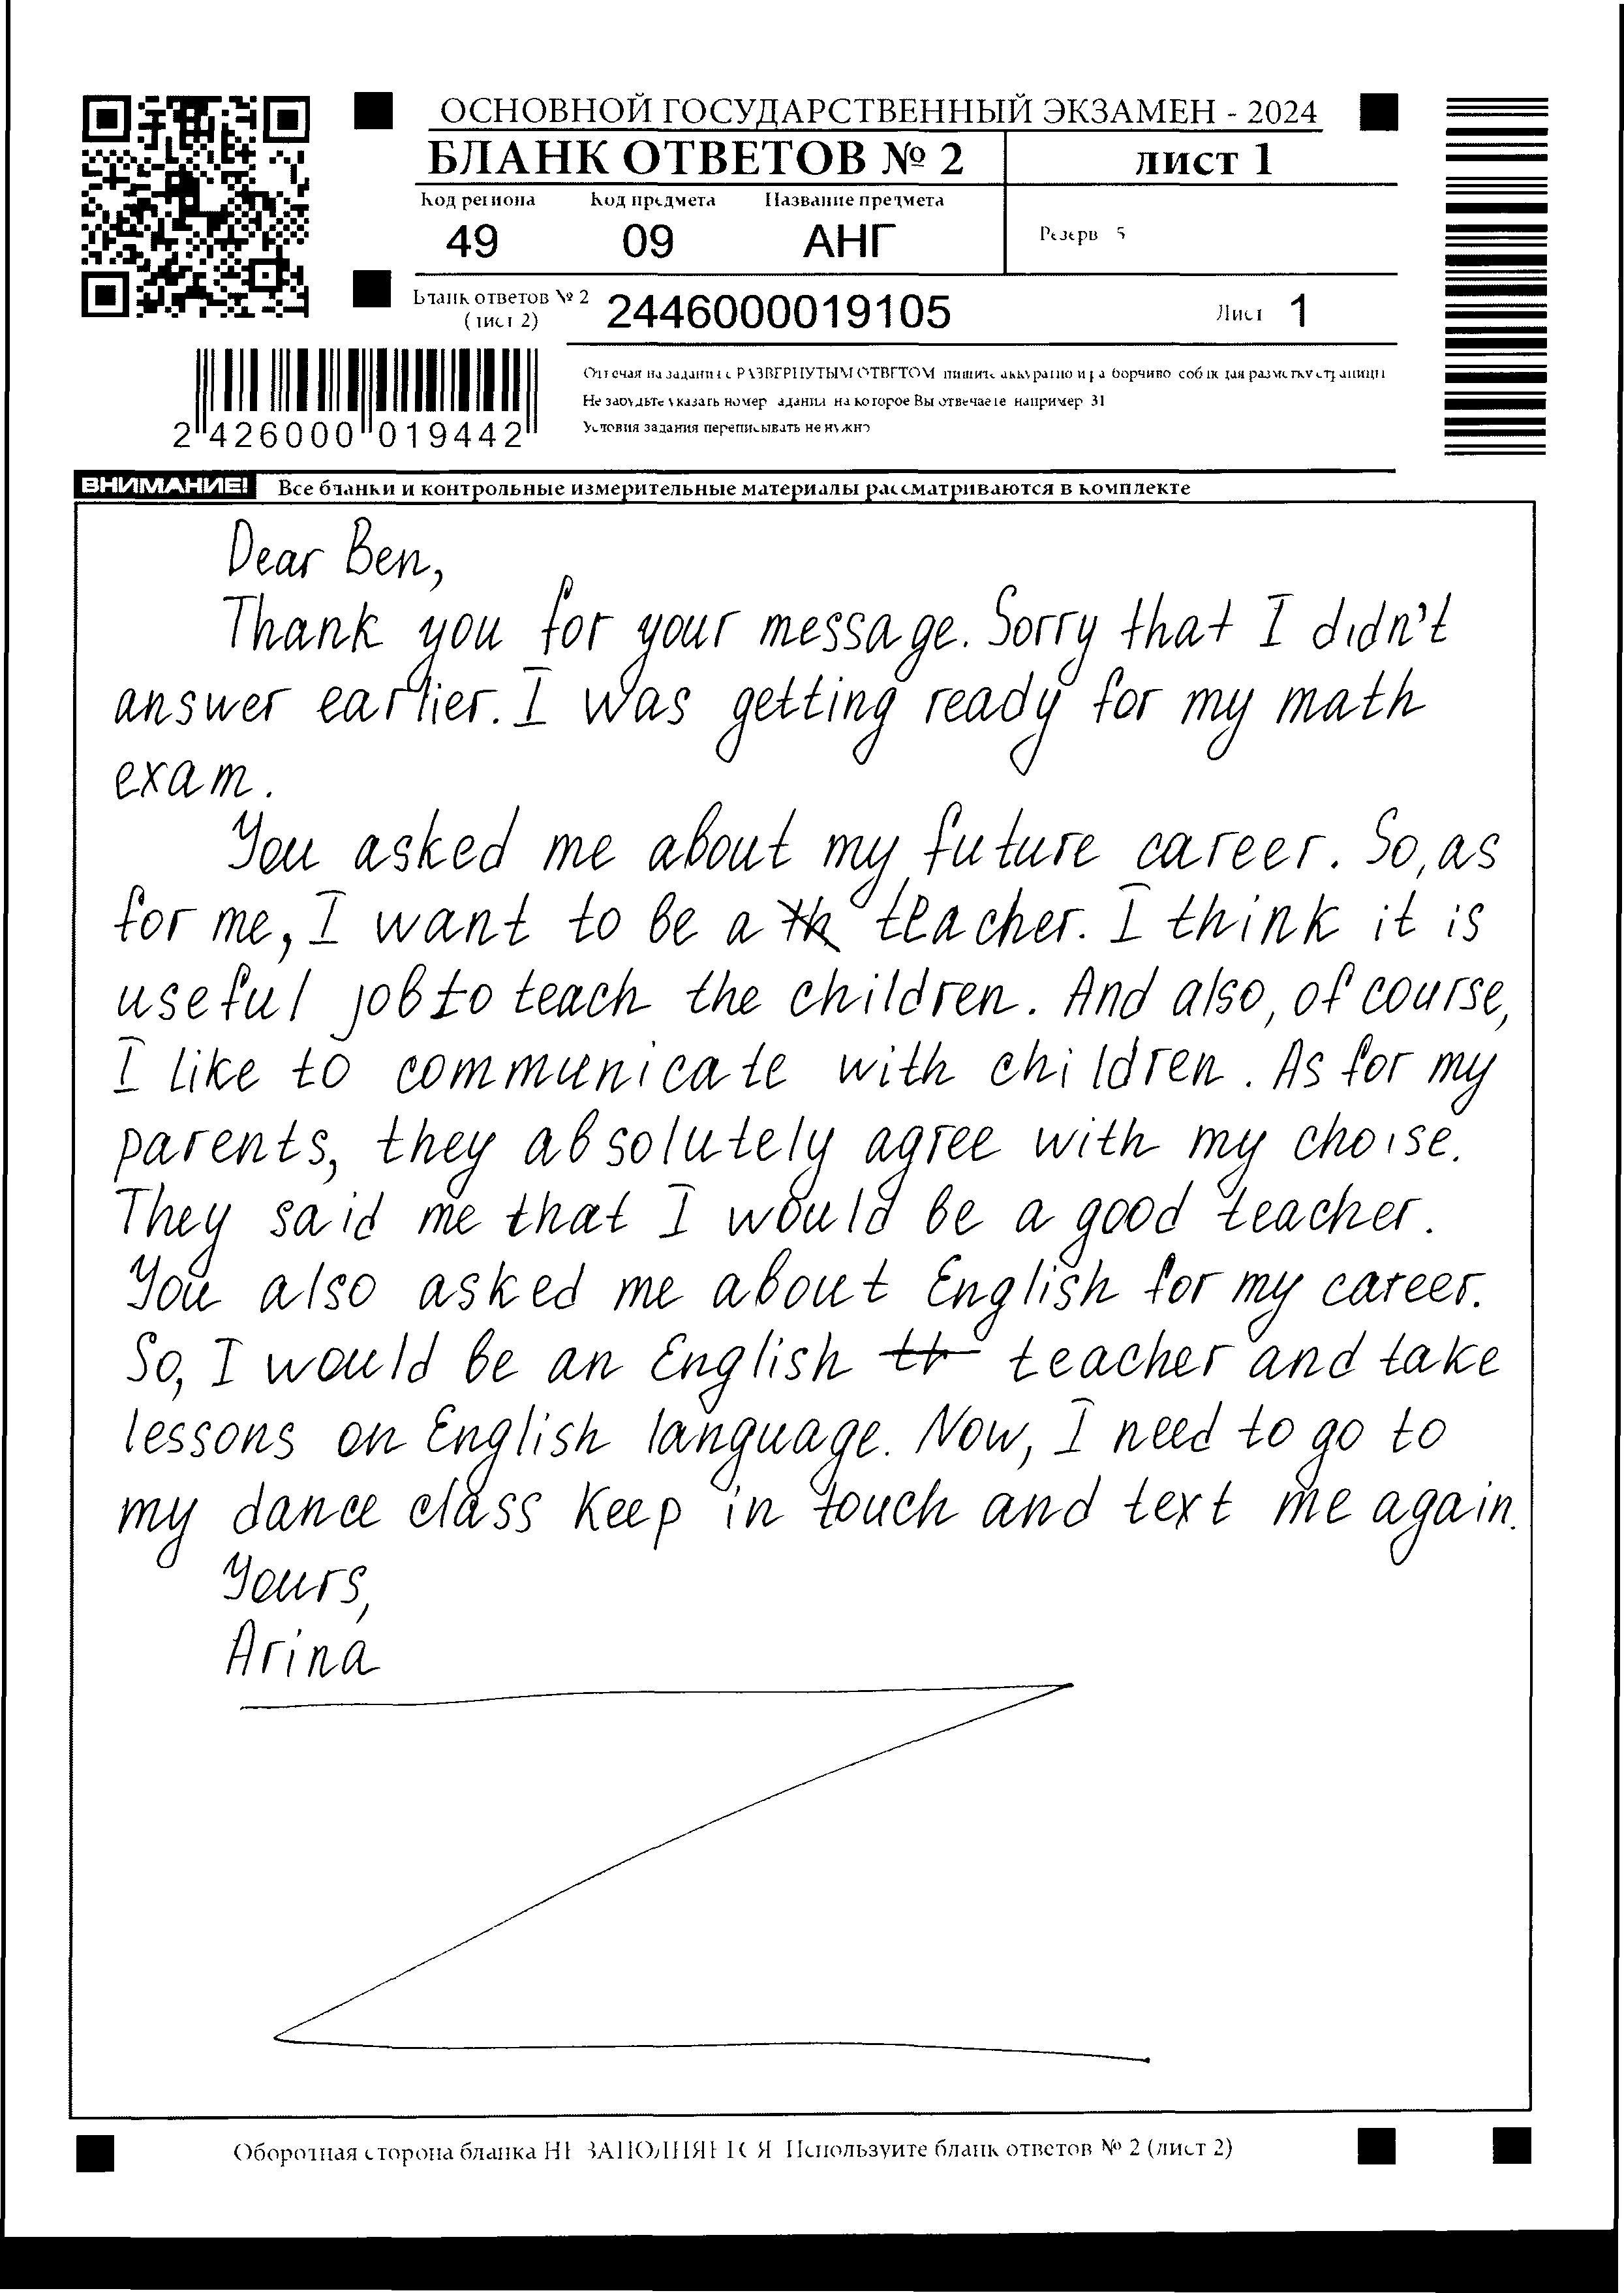 ОСНОВНОЙ ГОСУДАРСТВЕННЫЙ ЭКЗАМЕН - 2024
БЛАНК ОТВЕТОВ № 2
лист 1
Код региона Код предмета Название предмета
Резерв 5
49 09 АНГ
Бланк ответов № 2
(лист 2)
2446000019105
Лист 1
Отвечая на задания с РАЗВЕРНУТЫМ ОТВЕТОМ пишите аккуратно и разборчиво соблюдая разметку страницы
Не забудьте указать номер задания на которое Вы отвечаете например 31
Условия задания переписывать не нужно
2 426000 019442
ВНИМАНИЕ! Все бланки и контрольные измерительные материалы рассматриваются в комплекте
Dear Ben,
Thank you for your message. Sorry that I didn't
answer earlier. I was getting ready for my math
exam.
You asked me about my future career. So, as
for me, I want to be a teacher. I think it is
useful job to teach the children. And also, of course,
I like to communicate with children. As for my
parents, they absolutely agree with my choise.
They said me that I would be a good teacher.
You also asked me about English for my career.
So, I would be an English teacher and take
lessons on English language. Now, I need to go to
my dance class Keep in touch and text me again.
Yours,
Arina
Оборотная сторона бланка НЕ ЗАПОЛНЯЕТСЯ Используйте бланк ответов № 2 (лист 2)